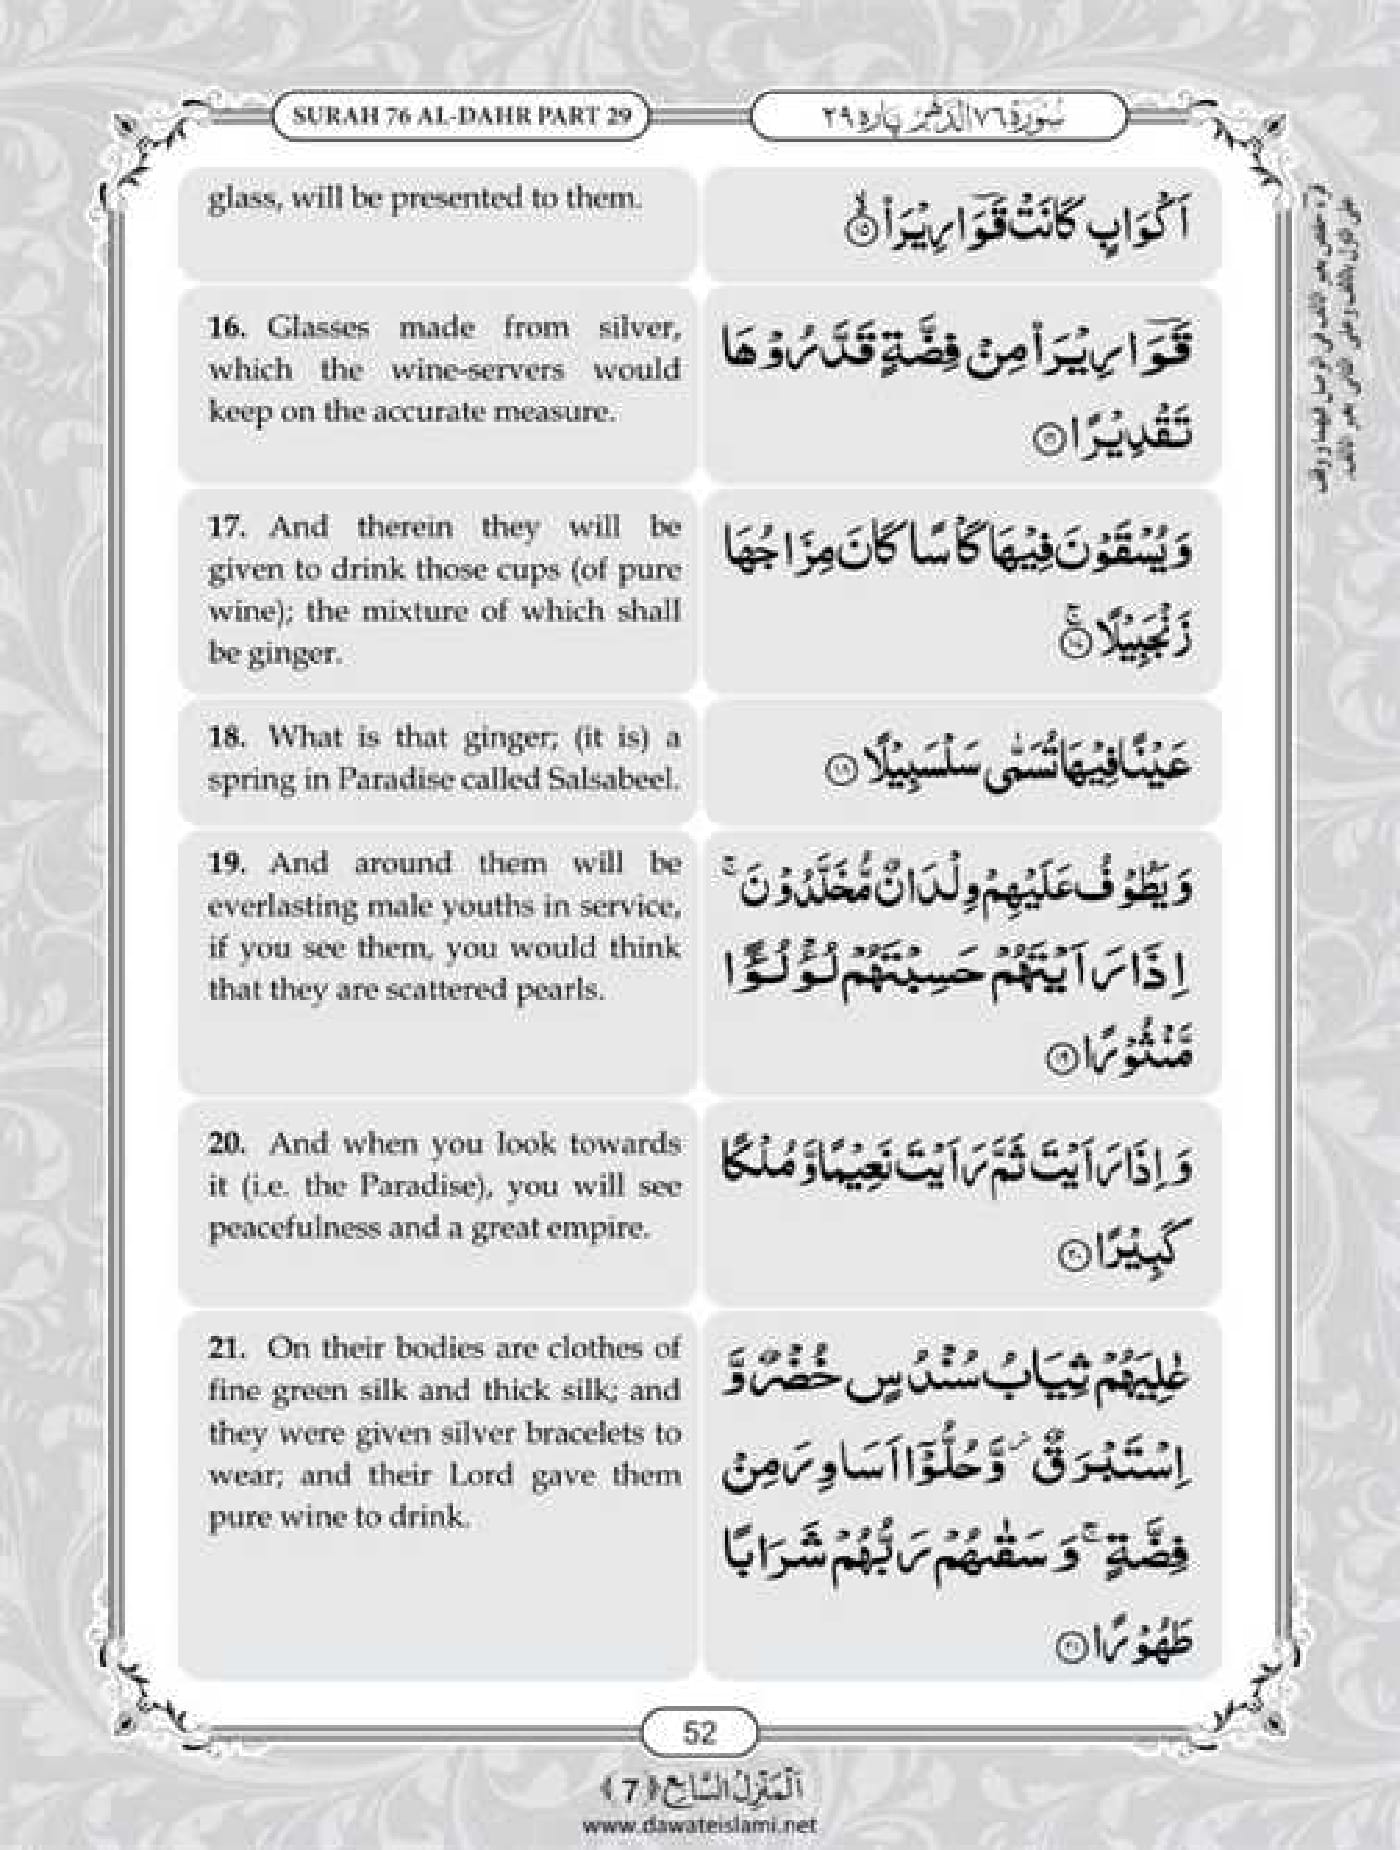 SURAH 76 AL-DAHR PART 29
سُوْرَةُ ٧٦ الدَّهْر پارہ ٢٩
glass, will be presented to them.
اَكْوَابٍ كَانَتْ قَوَارِيْرَا۠ ۙ﴿۱۵﴾
16. Glasses made from silver,
which the wine-servers would
keep on the accurate measure.
قَوَارِيْرَا۠ مِنْ فِضَّةٍ قَدَّرُوْهَا
تَقْدِيْرًا ﴿۱۶﴾
17. And therein they will be
given to drink those cups (of pure
wine); the mixture of which shall
be ginger.
وَ يُسْقَوْنَ فِيْهَا كَاْسًا كَانَ مِزَاجُهَا
زَنْجَبِيْلًا ۚ﴿۱۷﴾
18. What is that ginger; (it is) a
spring in Paradise called Salsabeel.
عَيْنًا فِيْهَا تُسَمّٰى سَلْسَبِيْلًا ﴿۱۸﴾
19. And around them will be
everlasting male youths in service,
if you see them, you would think
that they are scattered pearls.
وَ يَطُوْفُ عَلَيْهِمْ وِلْدَانٌ مُّخَلَّدُوْنَ ۚ
اِذَا رَاَيْتَهُمْ حَسِبْتَهُمْ لُؤْلُؤًا
مَّنْثُوْرًا ﴿۱۹﴾
20. And when you look towards
it (i.e. the Paradise), you will see
peacefulness and a great empire.
وَ اِذَا رَاَيْتَ ثَمَّ رَاَيْتَ نَعِيْمًا وَّ مُلْكًا
كَبِيْرًا ﴿۲۰﴾
21. On their bodies are clothes of
fine green silk and thick silk; and
they were given silver bracelets to
wear; and their Lord gave them
pure wine to drink.
عٰلِيَهُمْ ثِيَابُ سُنْدُسٍ خُضْرٌ وَّ
اِسْتَبْرَقٌ ؗ وَّ حُلُّوْۤا اَسَاوِرَ مِنْ
فِضَّةٍ ۚ وَ سَقٰىهُمْ رَبُّهُمْ شَرَابًا
طَهُوْرًا ﴿۲۱﴾
52
اَلْمَنْزِلُ السَّابِع ﴿7﴾
www.dawateislami.net